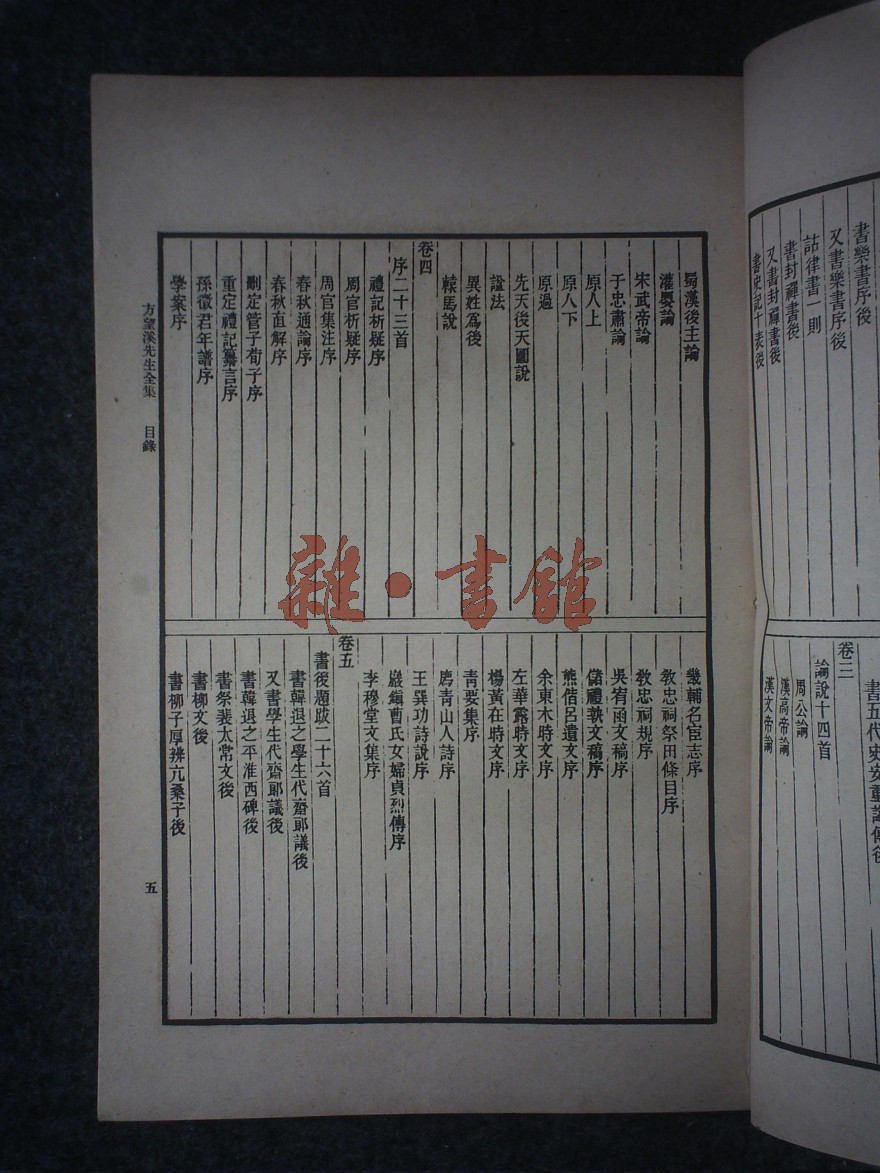 書樂書序後
又書樂書序後
詁律書一則
書封禪書後
又書封禪書後
書史記十表後
書五代史安重誨傳後
卷三
論說十四首
周公論
漢高帝論
漢文帝論
蜀漢後主論
灌嬰論
宋武帝論
于忠肅論
原人上
原人下
原過
先天後天圖說
諡法
異姓為後
轅馬說
卷四
序二十三首
禮記析疑序
周官析疑序
周官集注序
春秋通論序
春秋直解序
刪定管子荀子序
重定禮記纂言序
孫徵君年譜序
學案序
畿輔名臣志序
敎忠祠祭田條目序
敎忠祠規序
吳宥函文稿序
儲禮執文稿序
熊偕呂遺文序
余東木時文序
左華露時文序
楊黃在時文序
靑要集序
廌靑山人詩序
王巽功詩說序
巖鎭曹氏女婦貞烈傳序
李穆堂文集序
卷五
書後題跋二十六首
書韓退之學生代齋郞議後
又書學生代齋郞議後
書韓退之平淮西碑後
書祭裴太常文後
書柳文後
書柳子厚辨亢桑子後
方望溪先生全集 目錄
五
雜·書館